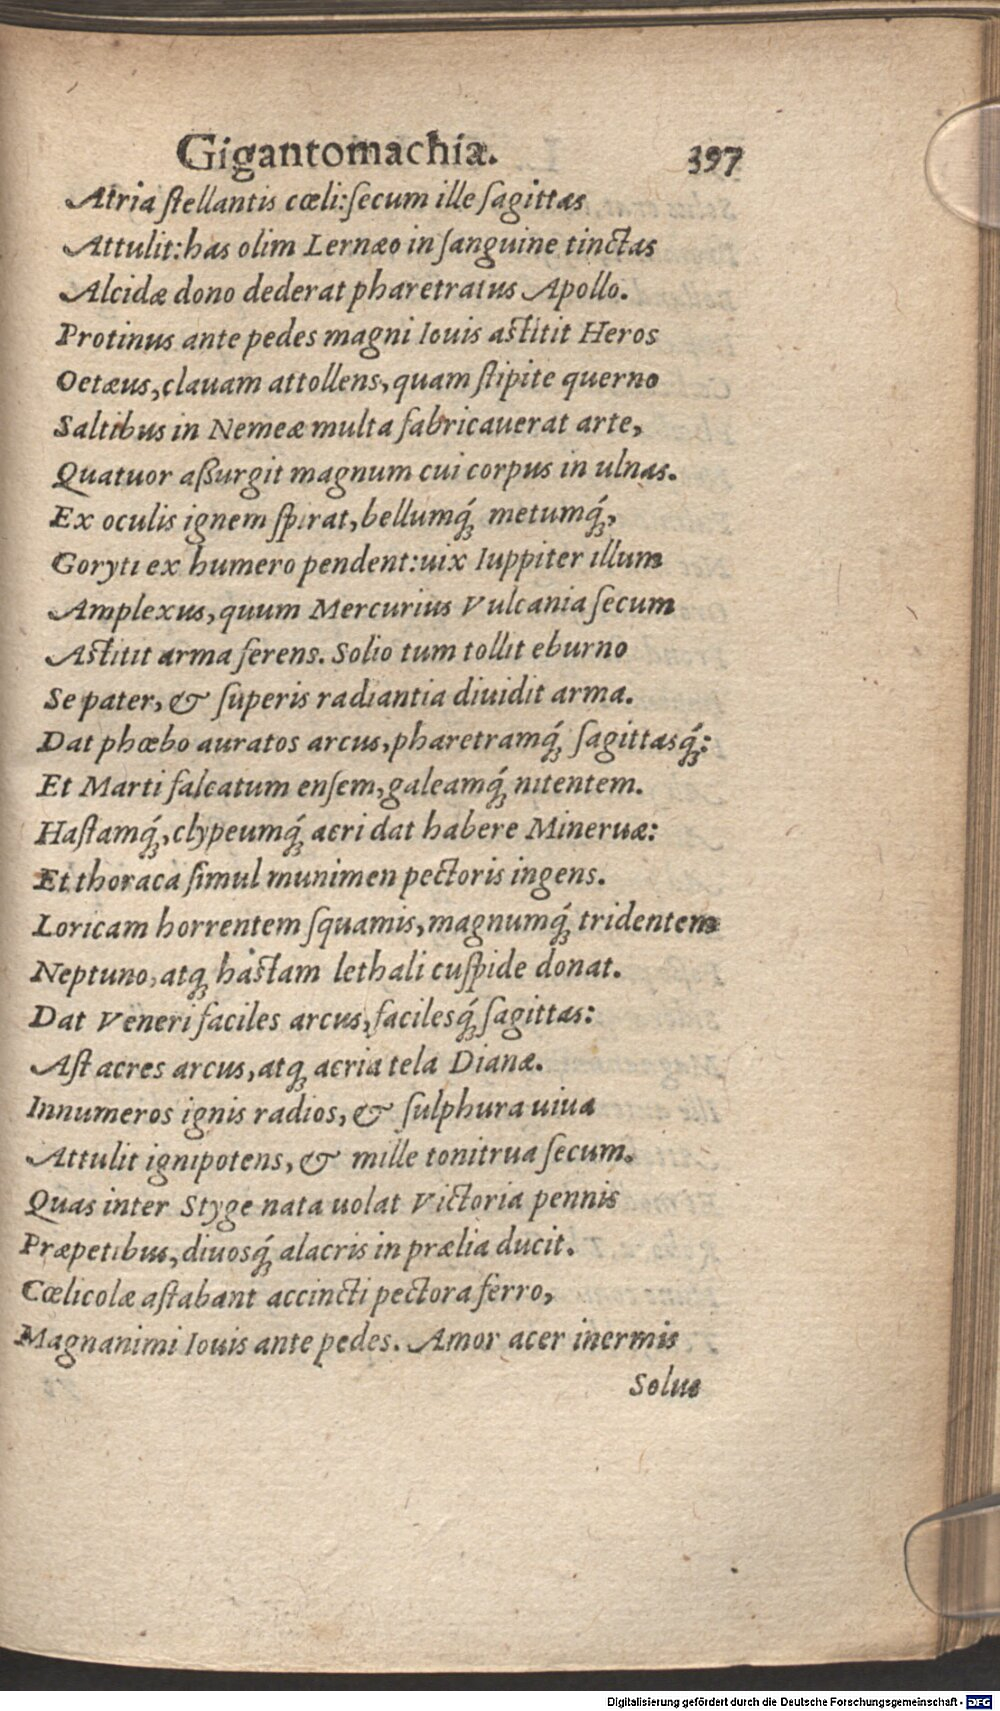 Gigantomachiæ. 397
Atria ſtellantis cœli:ſecum ille ſagittas
Attulit:has olim Lernæo in ſanguine tinctas
Alcidæ dono dederat pharetratus Apollo.
Protinus ante pedes magni Iouis aſtitit Heros
Oetæus,clauam attollens,quam ſtipite querno
Saltibus in Nemeæ multa fabricauerat arte,
Quatuor aßurgit magnum cui corpus in ulnas.
Ex oculis ignem ſpirat,bellumq́ꝫ metumq́ꝫ,
Goryti ex humero pendent:uix Iuppiter illum
Amplexus,quum Mercurius Vulcania ſecum
Aſtitit arma ferens. Solio tum tollit eburno
Se pater, & ſuperis radiantia diuidit arma.
Dat phœbo auratos arcus,pharetramq́ꝫ ſagittasq́ꝫ:
Et Marti falcatum enſem,galeamq́ꝫ nitentem.
Haſtamq́ꝫ,clypeumq́ꝫ acri dat habere Mineruæ:
Et thoraca ſimul munimen pectoris ingens.
Loricam horrentem ſquamis,magnumq́ꝫ tridentem
Neptuno,atqꝫ haſtam lethali cuſpide donat.
Dat Veneri faciles arcus,facilesq́ꝫ ſagittas:
Aſt acres arcus,atqꝫ acria tela Dianæ.
Innumeros ignis radios, & ſulphura uiua
Attulit ignipotens, & mille tonitrua ſecum.
Quas inter Styge nata uolat Victoria pennis
Præpetibus,diuosq́ꝫ alacris in prælia ducit.
Cœlicolæ aſtabant accincti pectora ferro,
Magnanimi Iouis ante pedes. Amor acer inermis
Solus
Digitalisierung gefördert durch die Deutsche Forschungsgemeinschaft - DFG